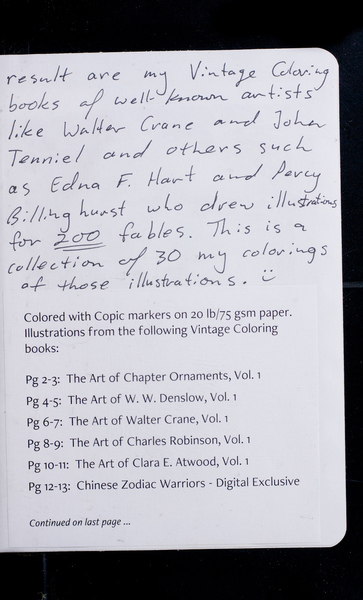 result are my Vintage Coloring
books of well-known artists
like Walter Crane and John
Tenniel and others such
as Edna F. Hart and Percy
Billinghurst who drew illustrations
for 200 fables. This is a
collection of 30 my colorings
of those illustrations. :)
Colored with Copic markers on 20 lb/75 gsm paper.
Illustrations from the following Vintage Coloring
books:
Pg 2-3: The Art of Chapter Ornaments, Vol. 1
Pg 4-5: The Art of W. W. Denslow, Vol. 1
Pg 6-7: The Art of Walter Crane, Vol. 1
Pg 8-9: The Art of Charles Robinson, Vol. 1
Pg 10-11: The Art of Clara E. Atwood, Vol. 1
Pg 12-13: Chinese Zodiac Warriors - Digital Exclusive
Continued on last page ...